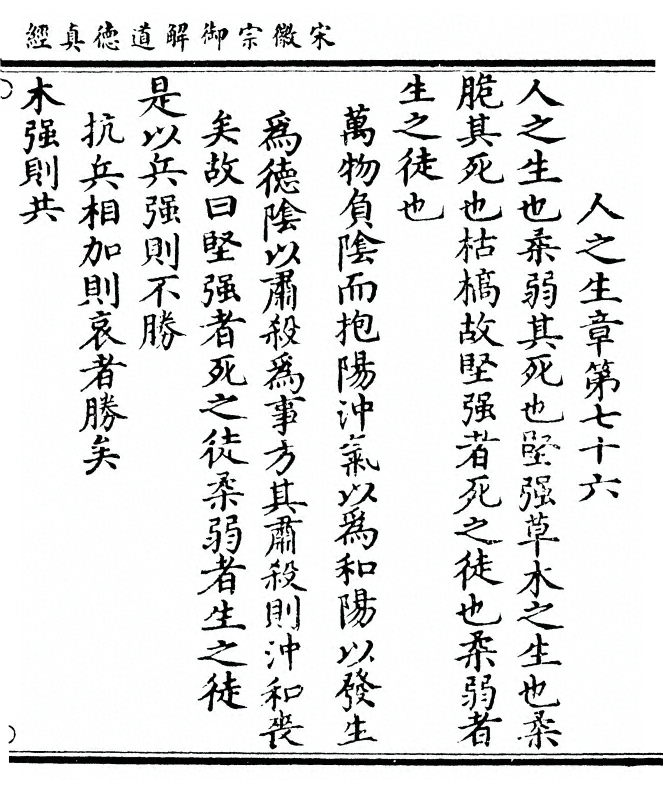 宋徽宗御解道德真經
人之生章第七十六
人之生也柔弱其死也堅强草木之生也柔
脆其死也枯槁故堅强者死之徒也柔弱者
生之徒也
萬物負陰而抱陽沖氣以爲和陽以發生
爲德陰以肅殺爲事方其肅殺則沖和喪
矣故曰堅强者死之徒柔弱者生之徒
是以兵强則不勝
抗兵相加則哀者勝矣
木强則共